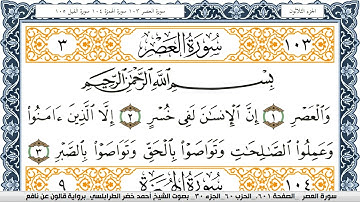 الجزء الثلاثون
سورة العصر ١٠٣ سورة الهمزة ١٠٤ سورة الفيل ١٠٥
١٠٣ سُورَةُ العَصْرِ ٣
بِسْمِ اللَّهِ الرَّحْمَٰنِ الرَّحِيمِ
وَالْعَصْرِ ١ إِنَّ الْإِنسَانَ لَفِي خُسْرٍ ٢ إِلَّا الَّذِينَ ءَامَنُوا
وَعَمِلُوا الصَّالِحَاتِ وَتَوَاصَوْا بِالْحَقِّ وَتَوَاصَوْا بِالصَّبْرِ ٣
١٠٤ سُورَةُ الهُمَزَةِ ٩
سورة العصر الصفحة ٦٠١ . الحزب ٦٠ الجزء ٣٠ . بصوت الشيخ أحمد خضر الطرابلسي . برواية قالون عن نافع